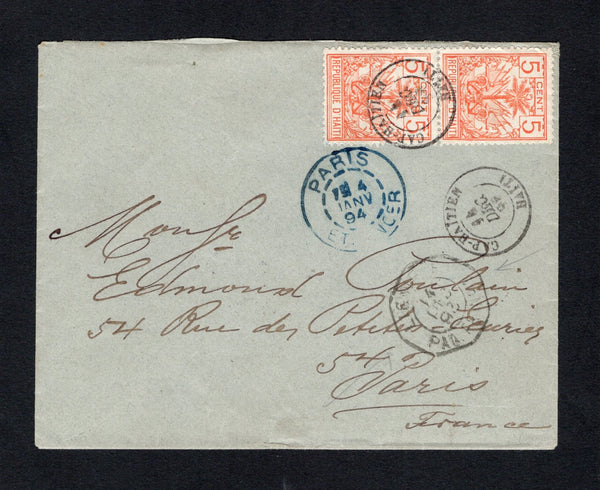 5 CENT 5
REPUBLIQUE D'HAITI
5 CENT 5
REPUBLIQUE D'HAITI
CAP-HAITIEN
HAITI
PARIS
4
JANV
94
ETRANGER
CAP-HAITIEN
HAITI
14
DEC
Monsr
Edmond Poulain
54 Rue des Petites Ecuries
54
Paris
France
PAQ